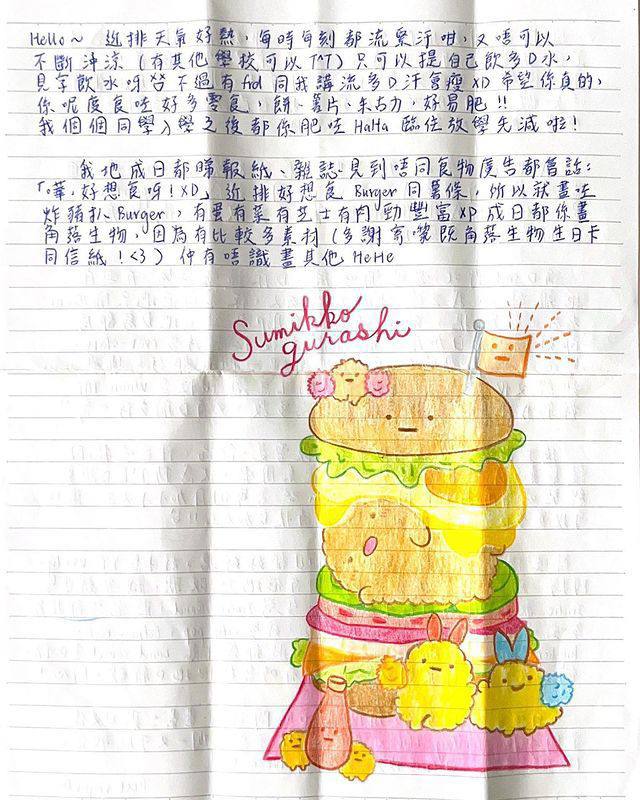 Hello~ 近排天氣好熱，每時每刻都流緊汗咁，又唔可以
不斷沖涼（有其他學校可以T^T）只可以提自己飲多D水，
見字飲水呀 不過有fd同我講流多D汗會瘦XD希望係真的，
係呢度食咗好多零食，餅、薯片、朱古力，好易肥！！
我個個同學入學之後都係肥咗HaHa 臨住放學先減啦！
我地成日都睇報紙、雜誌見到唔同食物廣告都會話：
「嘩，好想食呀！XD」近排好想食Burger同薯條，所以就畫咗
炸豬扒Burger，有蛋有菜有芝士有肉勁豐富XP成日都係畫
角落生物，因為有比較多素材（多謝寄嚟既角落生物生日卡
同信紙！<3）仲有唔識畫其他HeHe
Sumikko
gurashi